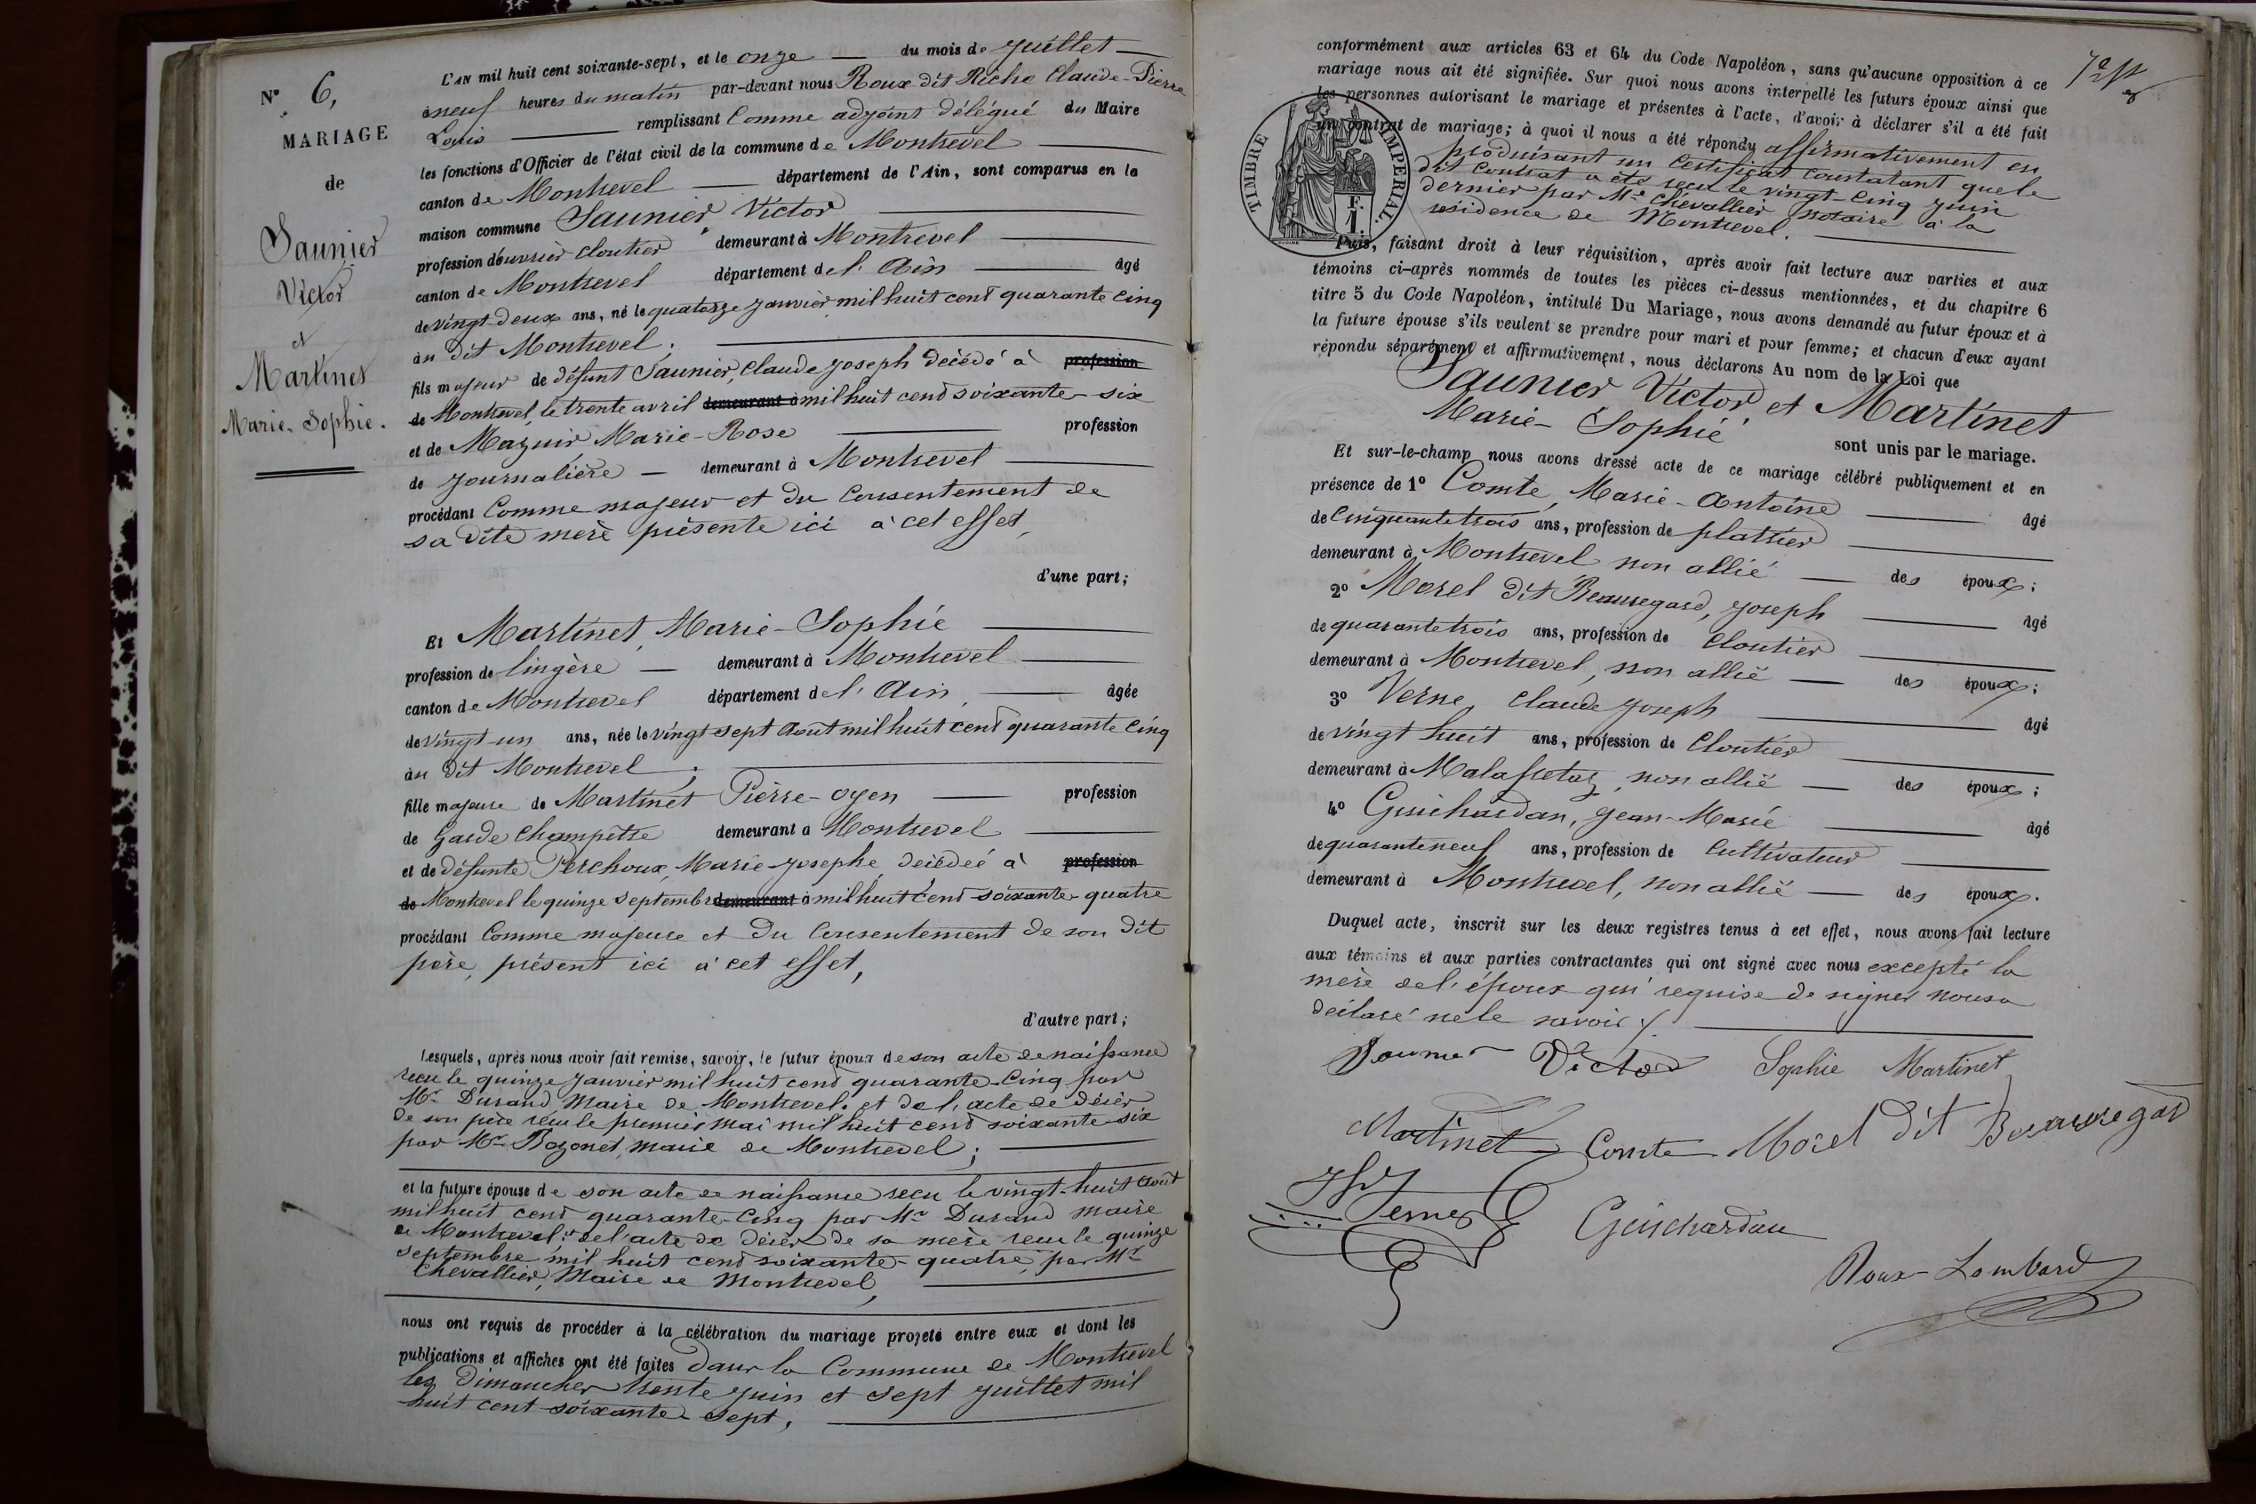 N° 6,
MARIAGE
de
Saunier
Victor
et
Martinet
Marie-Sophie.
L'AN mil huit cent soixante-sept, et le onze du mois de juillet
à neuf heures du matin par-devant nous Roux dit Riche Claude-Pierre
Louis remplissant comme adjoint délégué du Maire
les fonctions d'Officier de l'état civil de la commune de Montrevel
canton de Montrevel département de l'Ain, sont comparus en la
maison commune Saunier Victor
profession d'ouvrier cloutier demeurant à Montrevel
canton de Montrevel département de l'Ain âgé
de vingt-deux ans, né le quatorze janvier mil huit cent quarante cinq
au dit Montrevel.
fils majeur de défunt Saunier, Claude Joseph décédé à profession
de Montrevel, le trente avril demeurant à mil huit cent soixante-six
et de Mazuir Marie-Rose profession
de journalière demeurant à Montrevel
procédant comme majeur et du consentement de
sa dite mère présente ici à cet effet,
d'une part;
Et Martinet, Marie-Sophie
profession de lingère demeurant à Montrevel
canton de Montrevel département de l'Ain, âgée
de vingt-un ans, née le vingt-sept août mil huit cent quarante cinq
au dit Montrevel;
fille majeure de Martinet Pierre-Oyen profession
de Garde Champêtre demeurant à Montrevel
et de défunte Perchoux, Marie-Josephe, décédée à profession
de Montrevel le quinze septembre demeurant à mil huit cent soixante-quatre
procédant comme majeure et du consentement de son dit
père, présent ici à cet effet,
d'autre part;
Lesquels, après nous avoir fait remise, savoir, le futur époux de son acte de naissance
reçu le quinze janvier mil huit cent quarante-cinq par
Mr Durand Maire de Montrevel. et de l'acte de décès
de son père reçu le premier mai mil huit cent soixante-six
par Mr Bozonet, maire de Montrevel;
et la future épouse de son acte de naissance reçu le vingt-huit août
mil huit cent quarante-cinq par Mr Durand maire
de Montrevel: de l'acte de décès de sa mère reçu le quinze
septembre mil huit cent soixante-quatre, par Mr
Chevallier, Maire de Montrevel,
nous ont requis de procéder à la célébration du mariage projeté entre eux et dont les
publications et affiches ont été faites dans la Commune de Montrevel
les dimanches trente juin et sept juillet mil
huit cent soixante-sept,
conformément aux articles 63 et 64 du Code Napoléon, sans qu'aucune opposition à ce
mariage nous ait été signifiée. Sur quoi nous avons interpellé les futurs époux ainsi que
les personnes autorisant le mariage et présentes à l'acte, d'avoir à déclarer s'il a été fait
un contrat de mariage; à quoi il nous a été répondu affirmativement en
produisant un certificat constatant que le
dit contrat a été reçu le vingt-cinq juin
dernier par Me Chevallier notaire à la
résidence de Montrevel.
TIMBRE IMPERIAL.
1 F.
Puis, faisant droit à leur réquisition, après avoir fait lecture aux parties et aux
témoins ci-après nommés de toutes les pièces ci-dessus mentionnées, et du chapitre 6
titre 5 du Code Napoléon, intitulé Du Mariage, nous avons demandé au futur époux et à
la future épouse s'ils veulent se prendre pour mari et pour femme; et chacun d'eux ayant
répondu séparément et affirmativement, nous déclarons Au nom de la Loi que
Saunier Victor et Martinet
Marie-Sophie sont unis par le mariage.
Et sur-le-champ nous avons dressé acte de ce mariage célébré publiquement et en
présence de 1° Comte, Marie-Antoine âgé
de cinquante trois ans, profession de plâtrier
demeurant à Montrevel non allié des époux;
2° Morel dit Beauregard, Joseph âgé
de quarante trois ans, profession de Cloutier
demeurant à Montrevel, non allié des époux;
3° Verne, Claude Joseph âgé
de vingt huit ans, profession de Cloutier
demeurant à Malafretaz, non allié des époux;
4° Guichardan, Jean-Marie âgé
de quarante neuf ans, profession de Cultivateur
demeurant à Montrevel, non allié des époux.
Duquel acte, inscrit sur les deux registres tenus à cet effet, nous avons fait lecture
aux témoins et aux parties contractantes qui ont signé avec nous excepté la
mère de l'époux qui requise de signer nous a
déclaré ne le savoir ./.
Sounier Victor Sophie Martinet
Martinet Comte Morel dit Beauregard
Verne Guichardan
Roux-Lombard